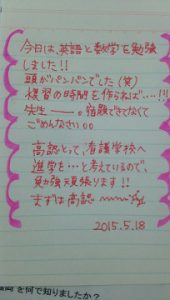 今日は、英語と数学を勉強
しました!!
頭がパンパンでした(笑)
復習の時間を作らねば‥‥!!
先生――。宿題できなくて
ごめんなさい。。
高認とって、看護学校へ
進学を…と考えているので、
勉強頑張ります!!
まずは高認
2015.5.18
を何で知りましたか?